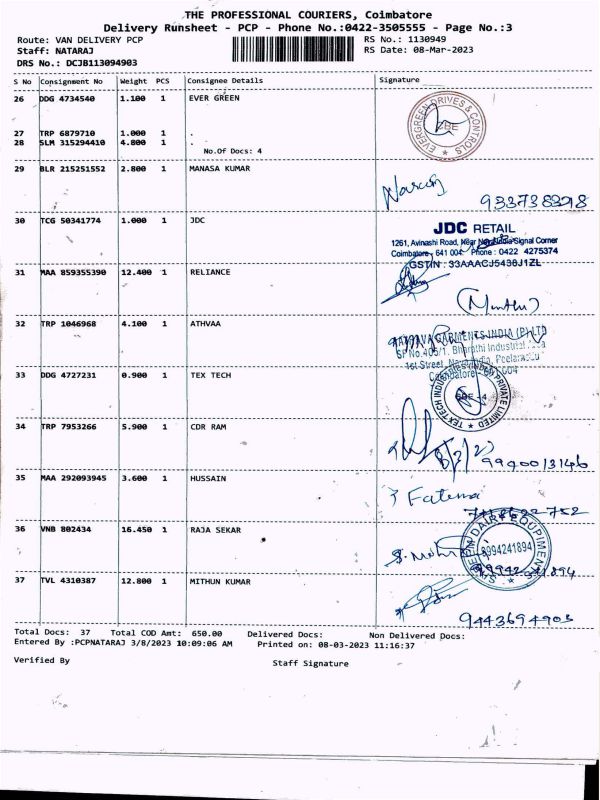 THE PROFESSIONAL COURIERS, Coimbatore
Delivery Runsheet - PCP - Phone No.:0422-3505555 - Page No.:3
Route: VAN DELIVERY PCP RS No.: 1130949
Staff: NATARAJ RS Date: 08-Mar-2023
DRS No.: DCJB113094903
S No Consignment No Weight PCS Consignee Details Signature
26 DDG 4734540 1.100 1 EVER GREEN
EVERGREEN DRIVES & CONTROLS
CBE
27 TRP 6879710 1.000 1 .
28 SLM 315294410 4.800 1 .
No.Of Docs: 4
29 BLR 215251552 2.800 1 MANASA KUMAR
30 TCG 50341774 1.000 1 JDC
JDC RETAIL
1261, Avinashi Road, Near Signal Corner
Coimbatore - 641 004. Phone : 0422 4275374
GSTIN : 33AAACJ5430J1ZL
31 MAA 859355390 12.400 1 RELIANCE
32 TRP 1046968 4.100 1 ATHVAA
GARMENTS INDIA (P) LTD
1st Street,
33 DDG 4727231 0.900 1 TEX TECH
TEXTECH INDUSTRIES INDIA PRIVATE LIMITED
34 TRP 7953266 5.900 1 CDR RAM
8/3/23
9940013146
35 MAA 292093945 3.600 1 HUSSAIN
Fatema
36 VNB 802434 16.450 1 RAJA SEKAR
DAIRY EQUIPMENTS
9994241894
37 TVL 4310387 12.800 1 MITHUN KUMAR
9443694903
Total Docs: 37 Total COD Amt: 650.00 Delivered Docs: Non Delivered Docs:
Entered By :PCPNATARAJ 3/8/2023 10:09:06 AM Printed on: 08-03-2023 11:16:37
Verified By Staff Signature